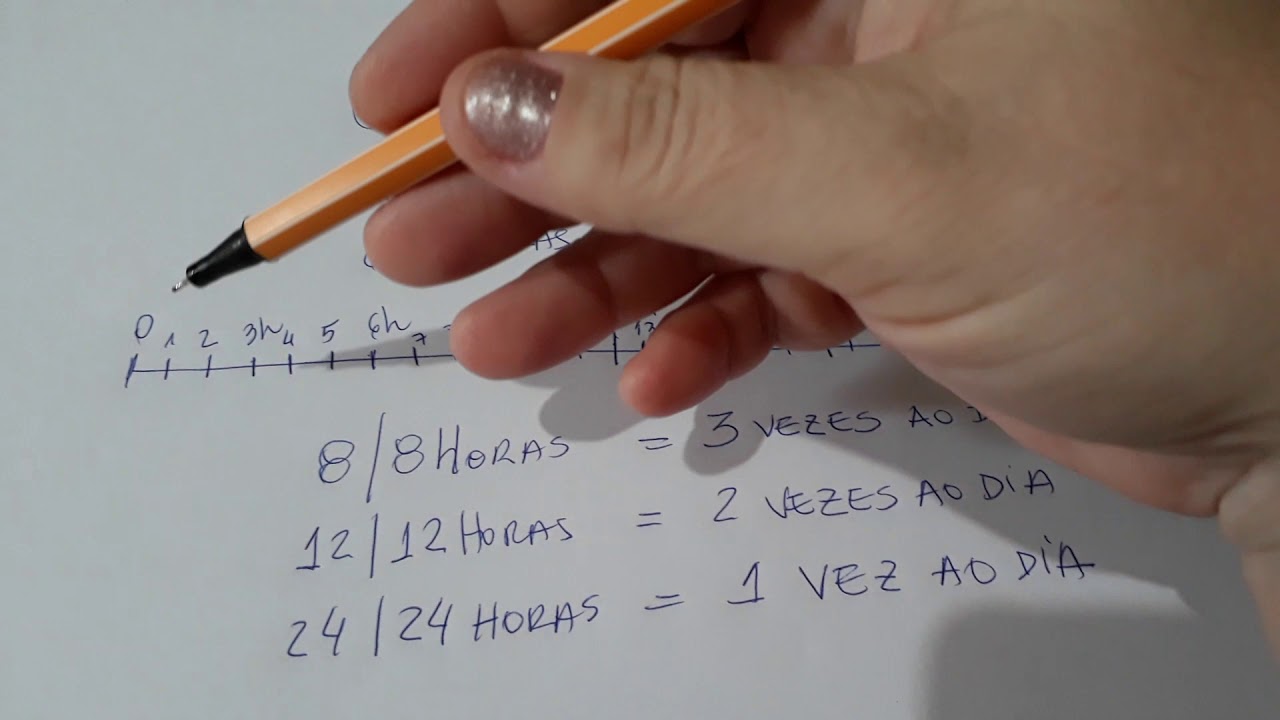 0 1 2 3h 4 5 6h 7
8/8 HORAS = 3 VEZES AO
12/12 HORAS = 2 VEZES AO DIA
24/24 HORAS = 1 VEZ AO DIA